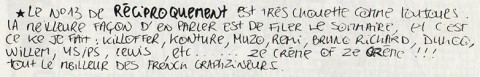 ★ LE NO13 DE RÉCiPROQUEMENT EST TRÈS CHOUETTE COMME TOUJOURS.
LA MEILLEURE FAÇON D'EN PARLER EST DE FILER LE SOMMAIRE, ET C'EST
CE KE JE FAIT: KILLOFFER, KONTURE, MUZO, REMi, BRUNO RiCHARD, DUHOO,
WiLLEM, YS/PS, LEWIS, ETC..... ZE CRÈME OF ZE CRÈME!!!
TOUT LE MEILLEUR DES FRENCH GRAPHZiNEURS